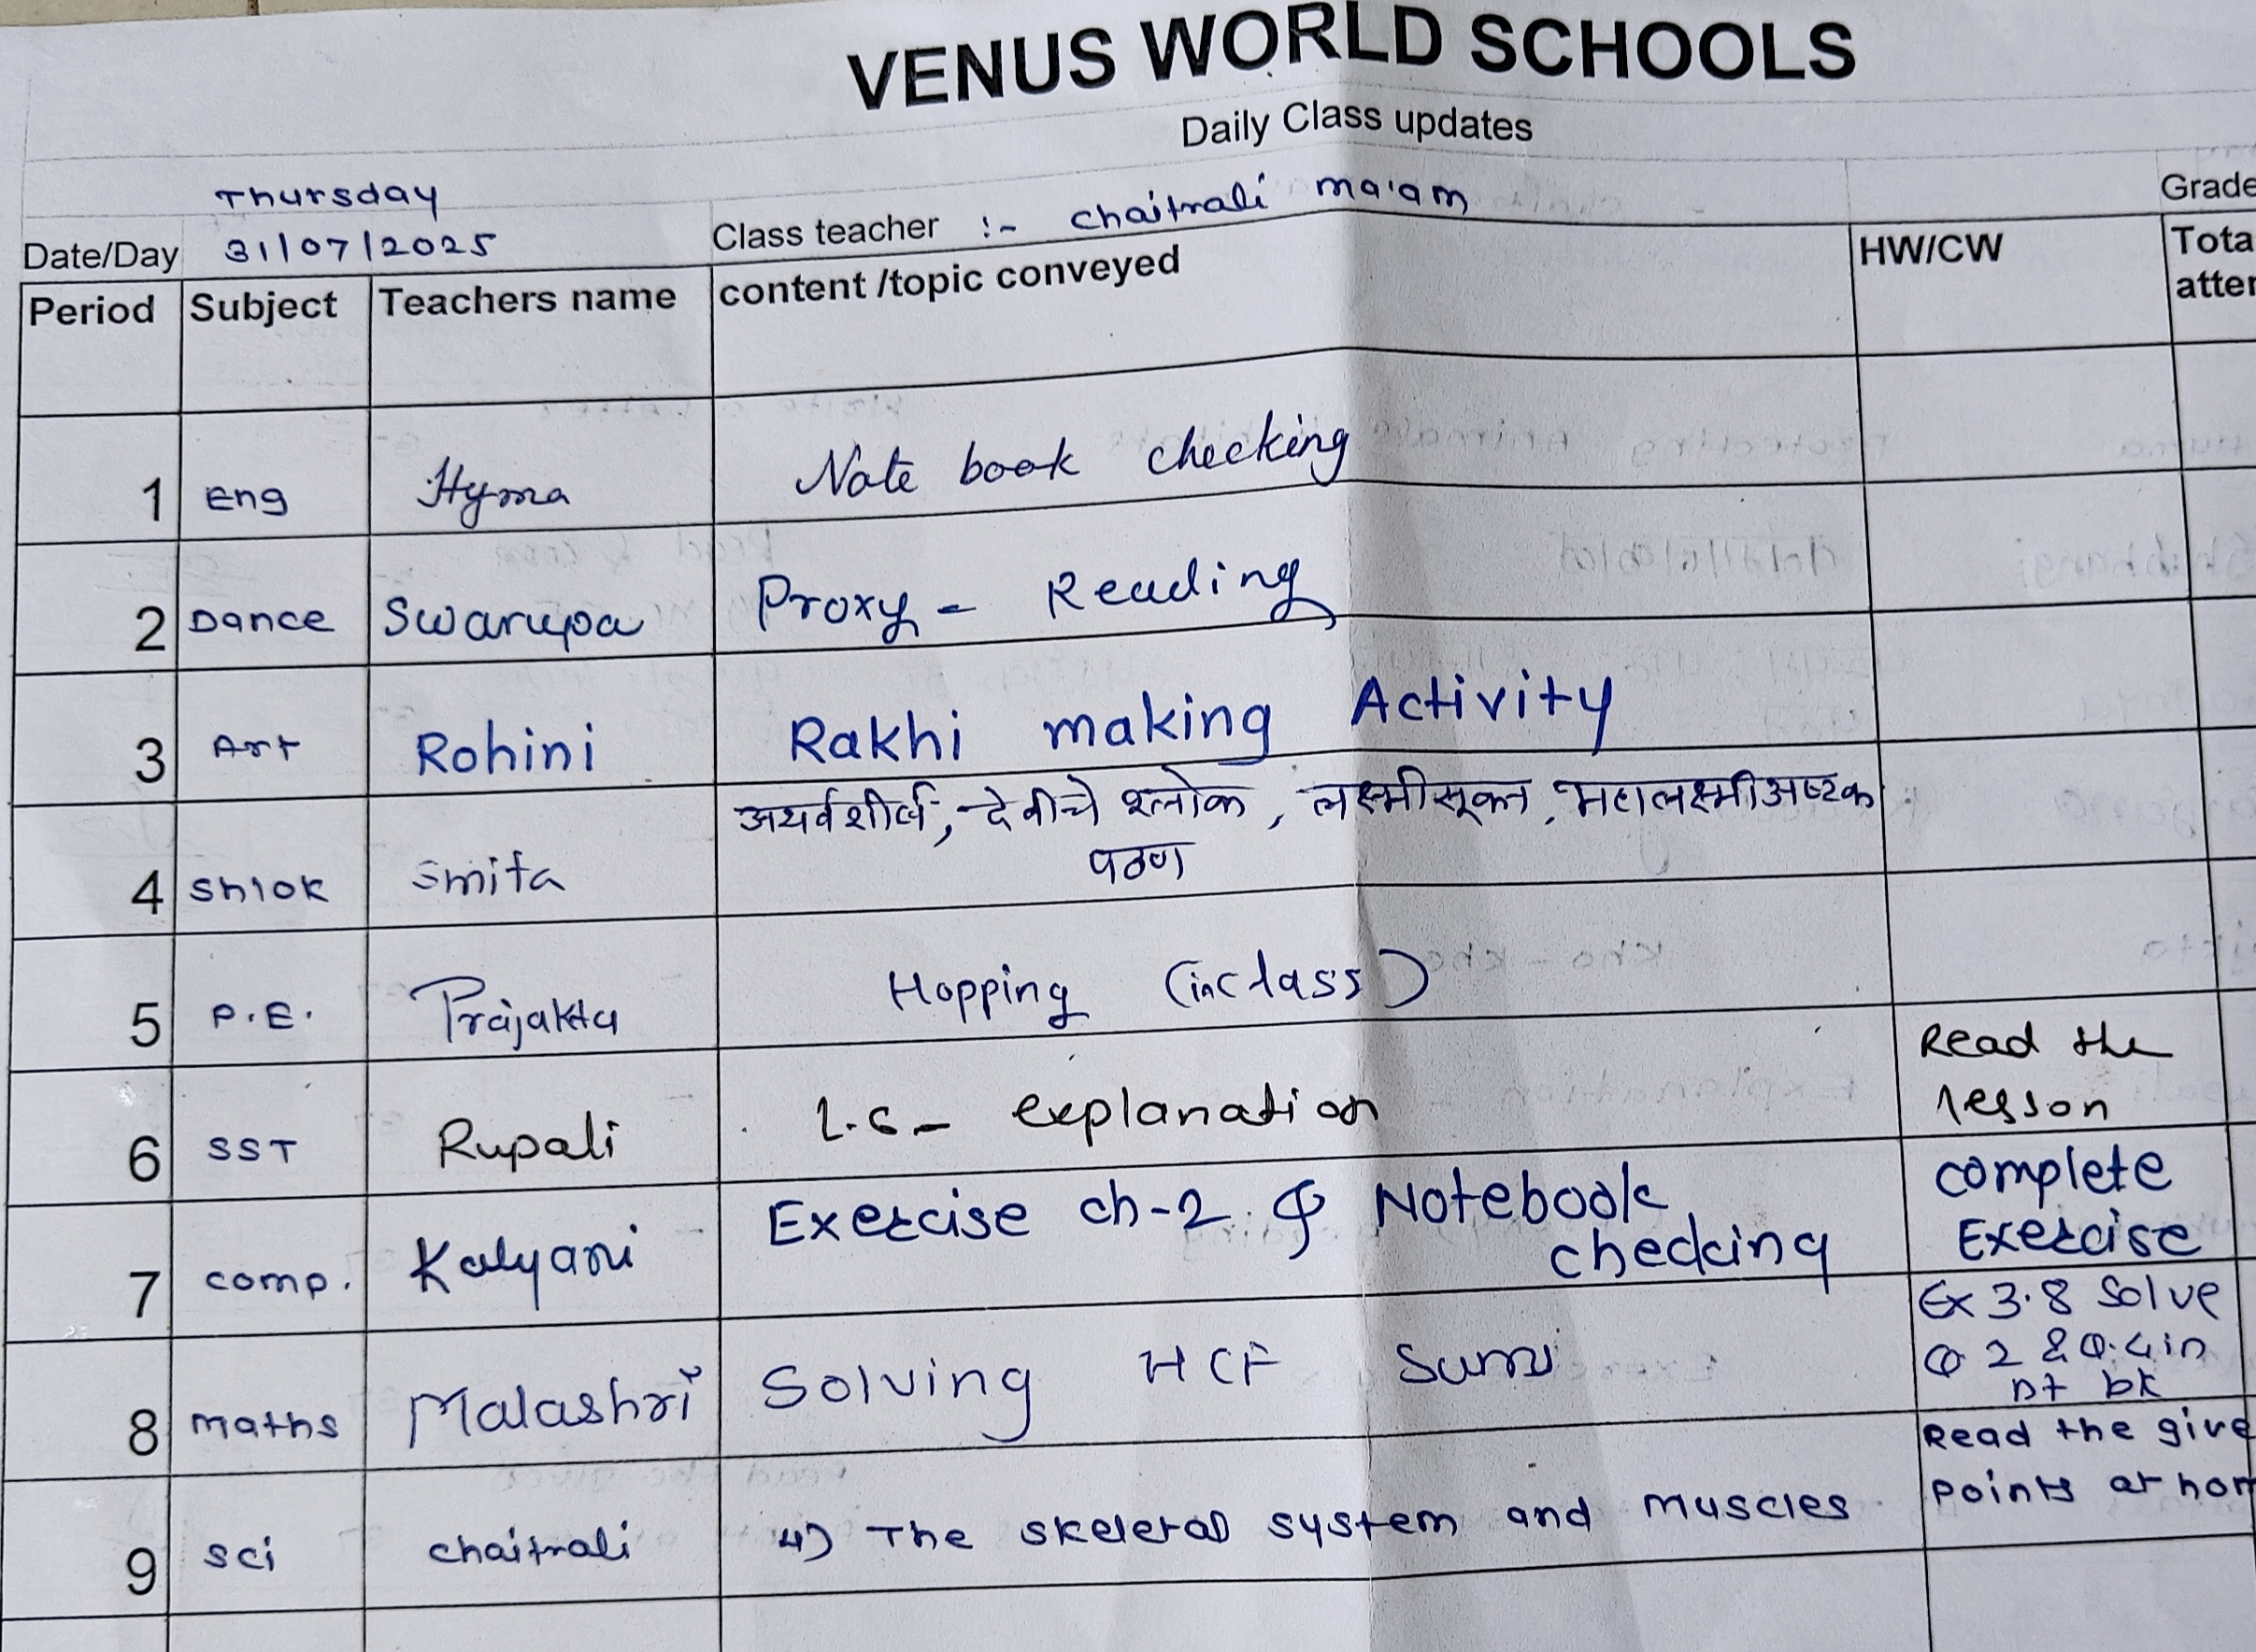 VENUS WORLD SCHOOLS
Daily Class updates
Thursday
Date/Day 31/07/2025 Class teacher :- chaitrali ma'am Grade
Period Subject Teachers name content /topic conveyed HW/CW Tota
atter
1 Eng Hyma Note book checking
2 Dance Swarupa Proxy - Reading
3 Art Rohini Rakhi making Activity
अथर्वशीर्ष, देवीचे श्लोक, लक्ष्मीसूक्त, महालक्ष्मीअष्टक
4 Shlok Smita पठण
5 P.E. Prajakta Hopping (in class)
Read the
6 SST Rupali L.6 - explanation lesson
7 comp. Kalyani Exercise ch-2 & Notebook complete
checking Exercise
Ex 3.8 Solve
8 maths Malashri Solving HCF Sums Q 2 & Q.4 in
nt bk
Read the give
9 sci chaitrali 4) The skeletal system and muscles points at hom